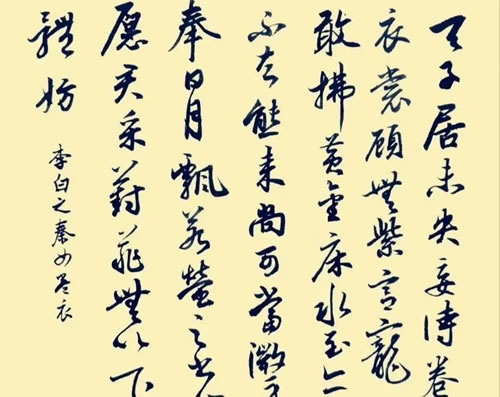 天子居未央妾侍卷
衣裳顾無紫宫寵
敢拂黄金床水至亦
不去熊来尚可當微身
奉日月飄若螢之光
愿君采葑菲無以下
體妨
李白之秦女卷衣